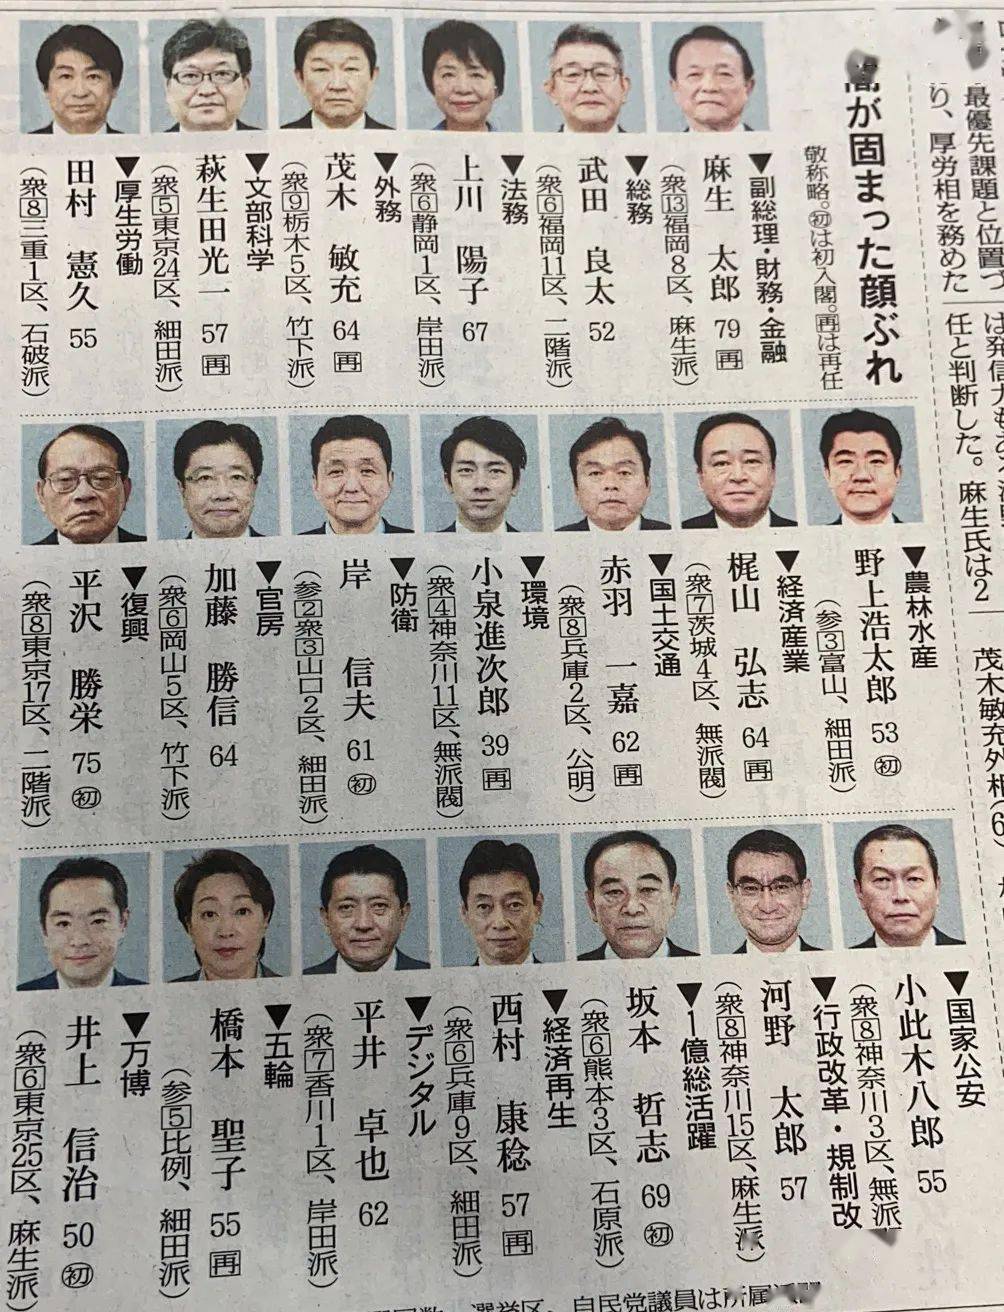 閣が固まった顔ぶれ
敬称略。㊞は初入閣。再は再任
▼副総理・財務・金融
麻生 太郎 79 再
(衆13福岡8区、麻生派)
▼総務
武田 良太 52
(衆6福岡11区、二階派)
▼法務
上川 陽子 67
(衆6静岡1区、岸田派)
▼外務
茂木 敏充 64 再
(衆9栃木5区、竹下派)
▼文部科学
萩生田光一 57 再
(衆5東京24区、細田派)
▼厚生労働
田村 憲久 55
(衆8三重1区、石破派)
▼農林水産
野上浩太郎 53 初
(参3富山、細田派)
▼経済産業
梶山 弘志 64 再
(衆7茨城4区、無派閥)
▼国土交通
赤羽 一嘉 62 再
(衆8兵庫2区、公明)
▼環境
小泉進次郎 39 再
(衆4神奈川11区、無派閥)
▼防衛
岸 信夫 61 初
(参2衆3山口2区、細田派)
▼官房
加藤 勝信 64
(衆6岡山5区、竹下派)
▼復興
平沢 勝栄 75 初
(衆8東京17区、二階派)
▼国家公安
小此木八郎 55
(衆8神奈川3区、無派
▼行政改革・規制改
河野 太郎 57
(衆8神奈川15区、麻生派)
▼1億総活躍
坂本 哲志 69 初
(衆6熊本3区、石原派)
▼経済再生
西村 康稔 57 再
(衆6兵庫9区、細田派)
▼デジタル
平井 卓也 62
(衆7香川1区、岸田派)
▼五輪
橋本 聖子 55 再
(参5比例、細田派)
▼万博
井上 信治 50 初
(衆6東京25区、麻生派)
最優先課題と位置づ
り、厚労相を務めた
任と判断した。麻生氏は2
茂木敏充外相(6
選挙区、自民党議員は所属派閥